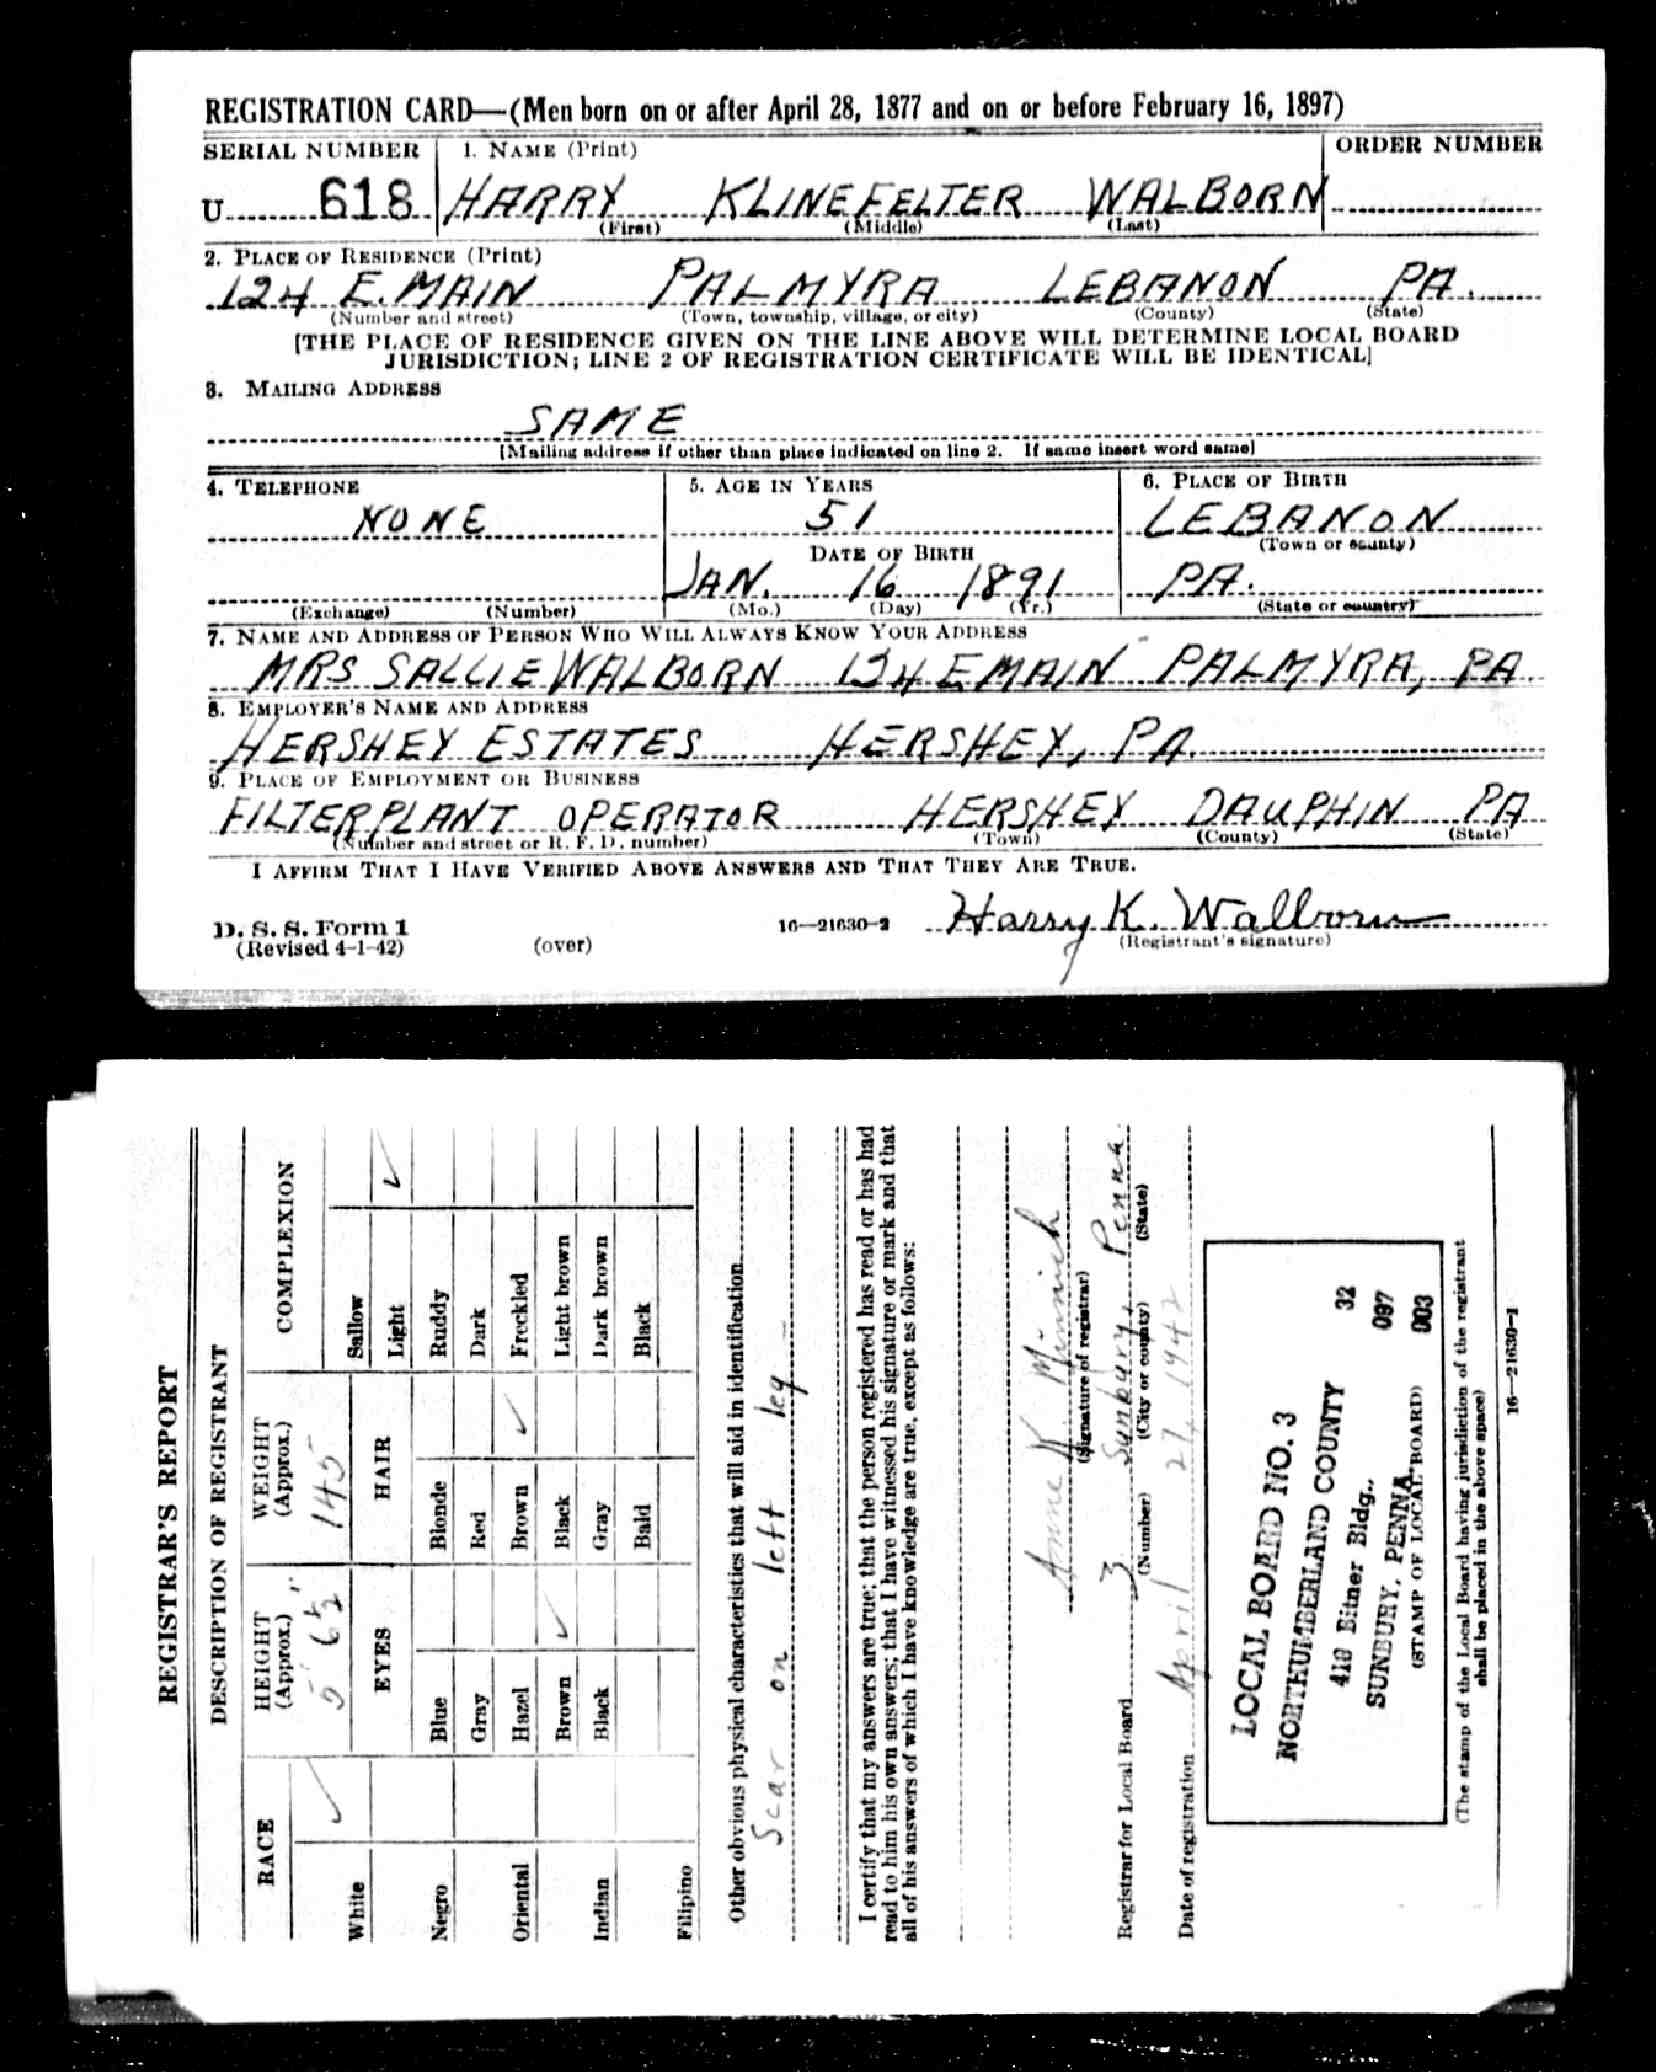 REGISTRATION CARD—(Men born on or after April 28, 1877 and on or before February 16, 1897)
SERIAL NUMBER 1. NAME (Print) ORDER NUMBER
U 618 HARRY KLINEFELTER WALBORN
(First) (Middle) (Last)
2. PLACE OF RESIDENCE (Print)
124 E. MAIN PALMYRA LEBANON PA.
(Number and street) (Town, township, village, or city) (County) (State)
[THE PLACE OF RESIDENCE GIVEN ON THE LINE ABOVE WILL DETERMINE LOCAL BOARD
JURISDICTION; LINE 2 OF REGISTRATION CERTIFICATE WILL BE IDENTICAL]
3. MAILING ADDRESS
SAME
[Mailing address if other than place indicated on line 2. If same insert word same]
4. TELEPHONE 5. AGE IN YEARS 6. PLACE OF BIRTH
NONE 51 LEBANON
(Town or county)
DATE OF BIRTH
JAN. 16 1891 PA.
(Exchange) (Number) (Mo.) (Day) (Yr.) (State or country)
7. NAME AND ADDRESS OF PERSON WHO WILL ALWAYS KNOW YOUR ADDRESS
MRS SALLIE WALBORN E MAIN PALMYRA, PA
8. EMPLOYER'S NAME AND ADDRESS
HERSHEY ESTATES HERSHEY, PA.
9. PLACE OF EMPLOYMENT OR BUSINESS
FILTER PLANT OPERATOR HERSHEY DAUPHIN PA
(Number and street or R. F. D. number) (Town) (County) (State)
I AFFIRM THAT I HAVE VERIFIED ABOVE ANSWERS AND THAT THEY ARE TRUE.
Harry K. Walborn
D. S. S. Form 1 16—21630-2 (Registrant's signature)
(Revised 4-1-42) (over)
REGISTRAR'S REPORT
DESCRIPTION OF REGISTRANT
RACE HEIGHT (Approx.) WEIGHT (Approx.) COMPLEXION
5' 6½" 145
White ✓ EYES HAIR Sallow
Light ✓
Negro Blue Blonde Ruddy
Gray Red Dark
Oriental Hazel Brown ✓ Freckled
Brown ✓ Black Light brown
Indian Black Gray Dark brown
Bald Black
Filipino
Other obvious physical characteristics that will aid in identification
Scar on left leg
I certify that my answers are true; that the person registered has read or has had
read to him his own answers; that I have witnessed his signature or mark and that
all of his answers of which I have knowledge are true, except as follows:
Anne K. Minnich
(Signature of registrar)
Registrar for Local Board 3 Sunbury, Penna.
(Number) (City or county) (State)
Date of registration April 27, 1942
LOCAL BOARD NO. 3
NORTHUMBERLAND COUNTY 32
410 Bitner Bldg., 097
SUNBURY, PENNA 003
(STAMP OF LOCAL BOARD)
(The stamp of the Local Board having jurisdiction of the registrant
shall be placed in the above space)
16—21630-1